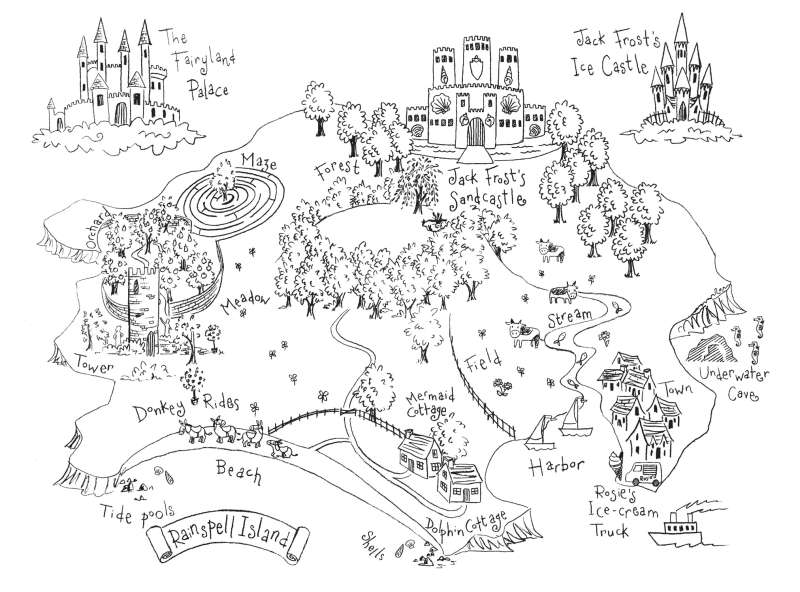 The
Fairyland
Palace
Jack Frost's
Ice Castle
Maze
Forest
Jack Frost's
Sandcastle
Orchard
Meadow
Stream
Tower
Field
Underwater
Cave
Town
Donkey Rides
Mermaid
Cottage
Beach
Harbor
Tide pools
Rosie's
Ice-cream
Truck
Dolphin Cottage
Rainspell Island
Shells